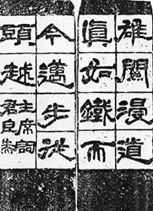 雄關漫道
眞如鐵而
今邁步從
頭越
主席詞
君良